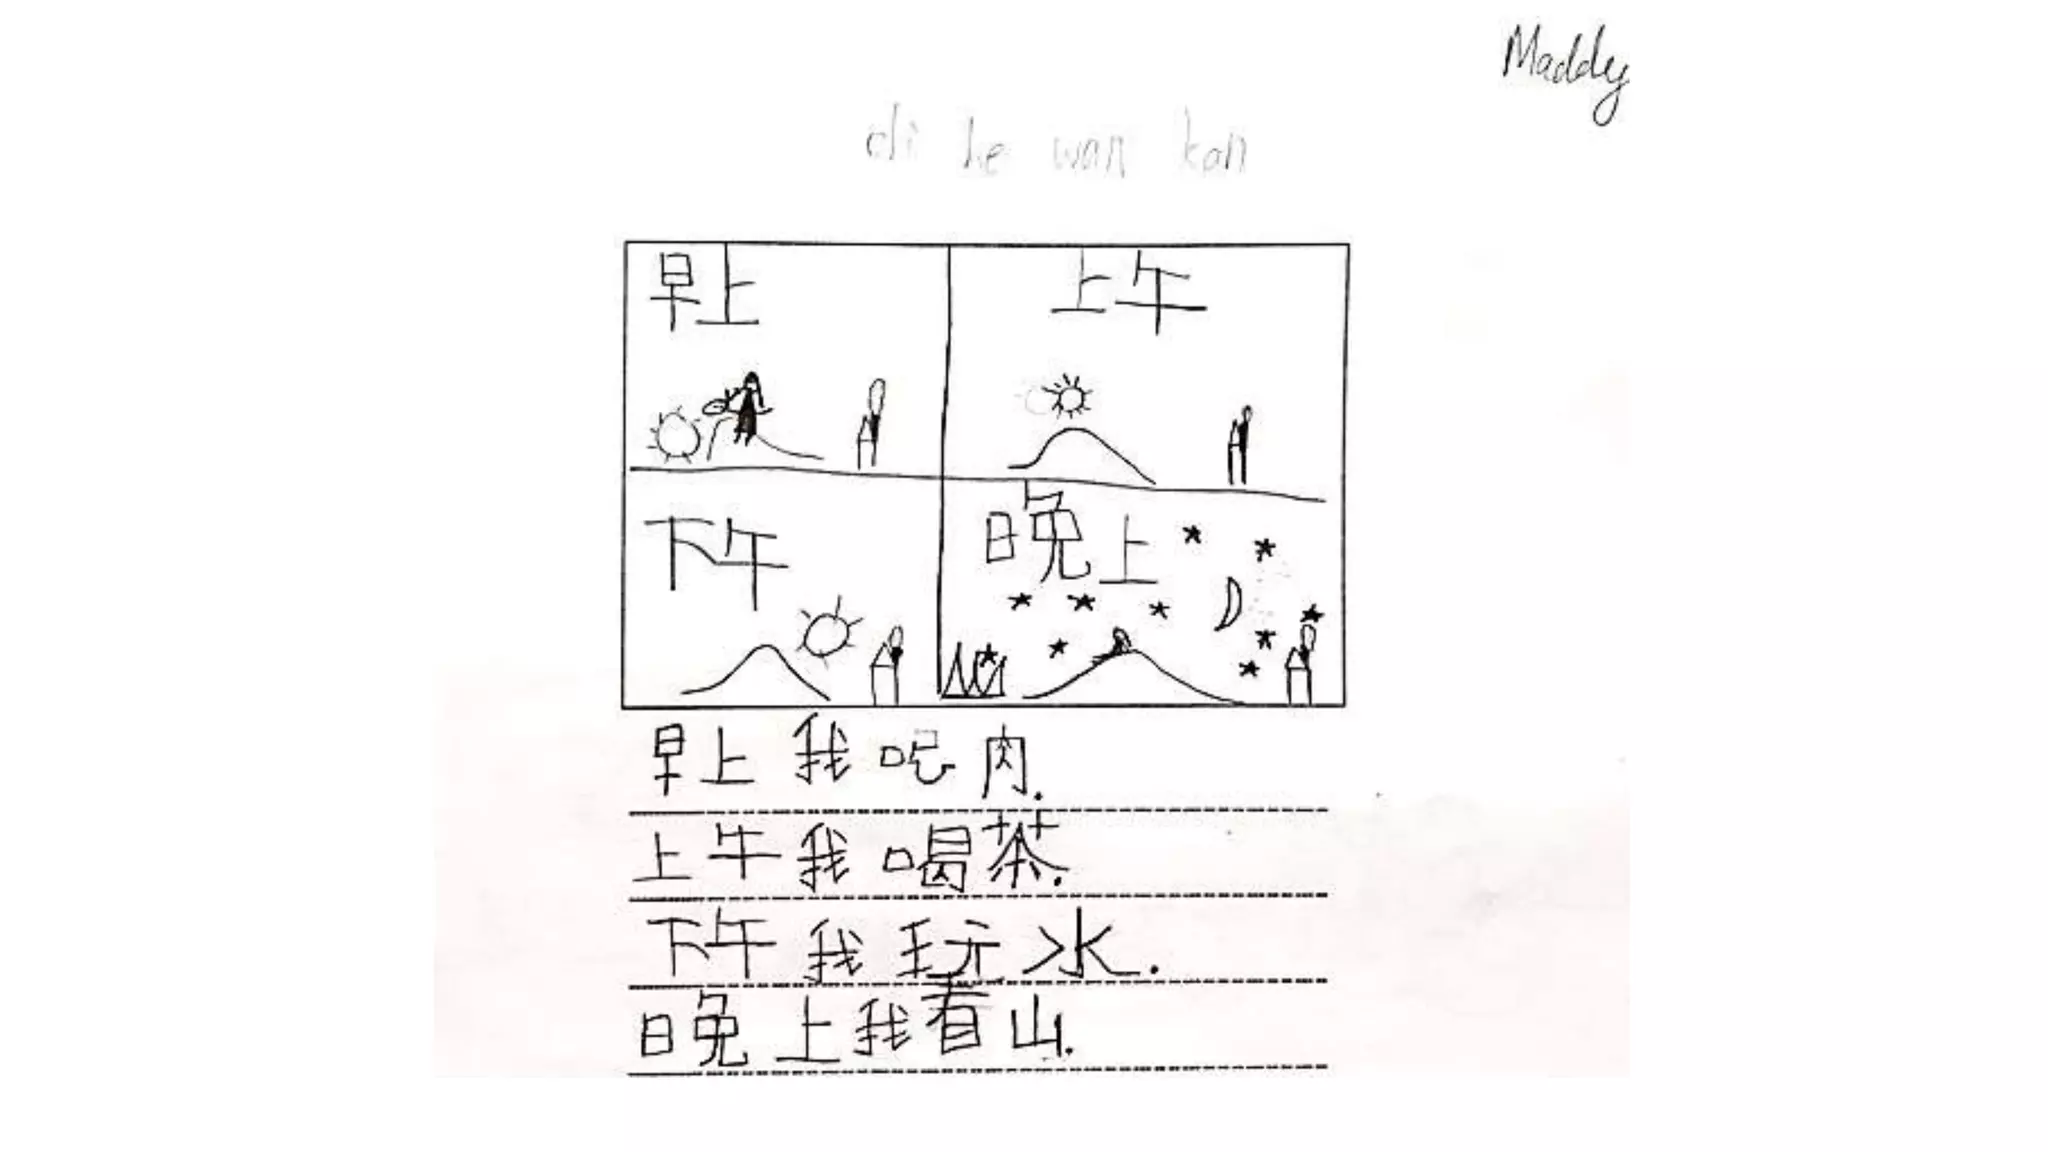 Maddy
chi he wan kan
早上
上午
下午
晚上
早上我吃肉.
上午我喝茶.
下午我玩水.
晚上我看山.